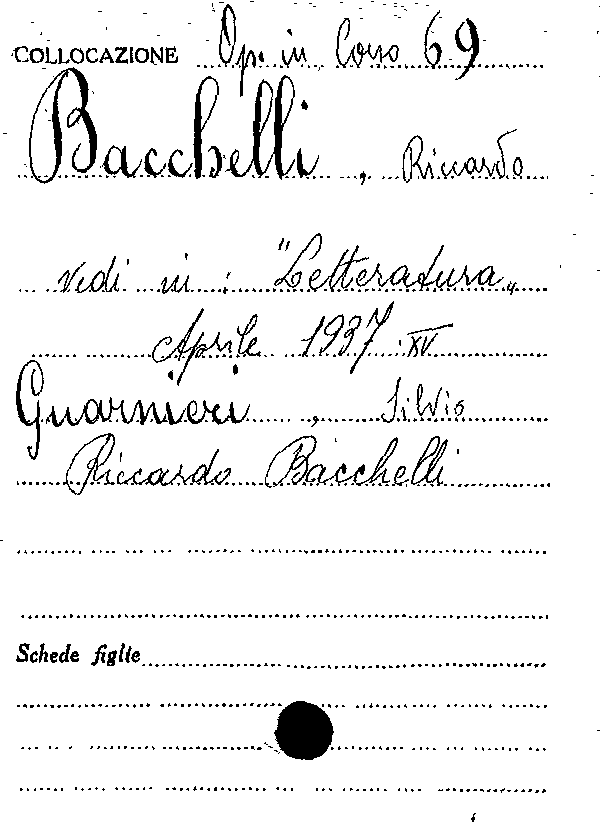 COLLOCAZIONE Op. in Corso 69
Bacchelli, Riccardo
vedi in: "Letteratura„
Aprile 1937 XV
Guarnieri, Silvio
Riccardo Bacchelli
Schede figlie